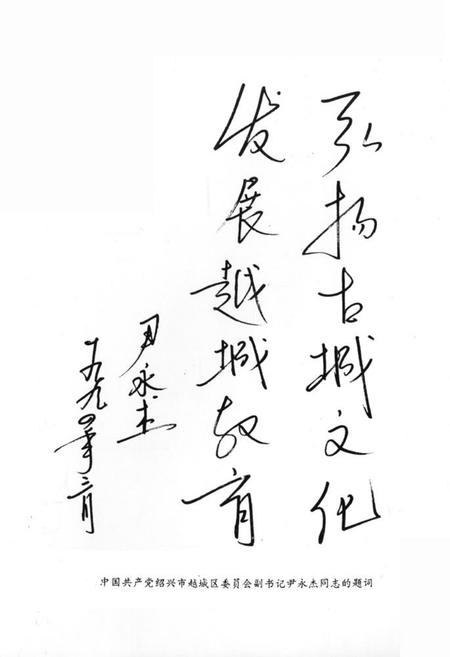 弘扬古城文化
发展越城教育
尹永杰
一九九四年三月
中国共产党绍兴市越城区委员会副书记尹永杰同志的题词